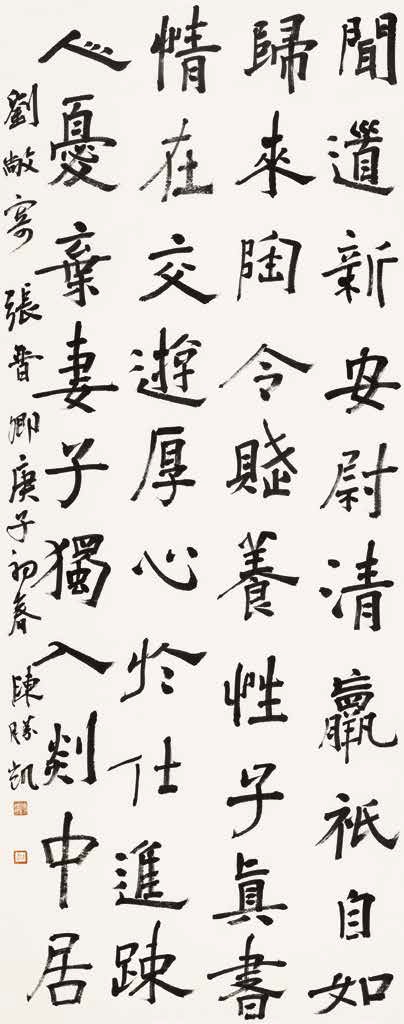 聞道新安尉清羸祇自如
歸來陶令賦養性子眞書
情在交遊厚心於仕進踈
必憂棄妻子獨入剡中居
劉敞寄張晉卿庚子初春 陳勝凱